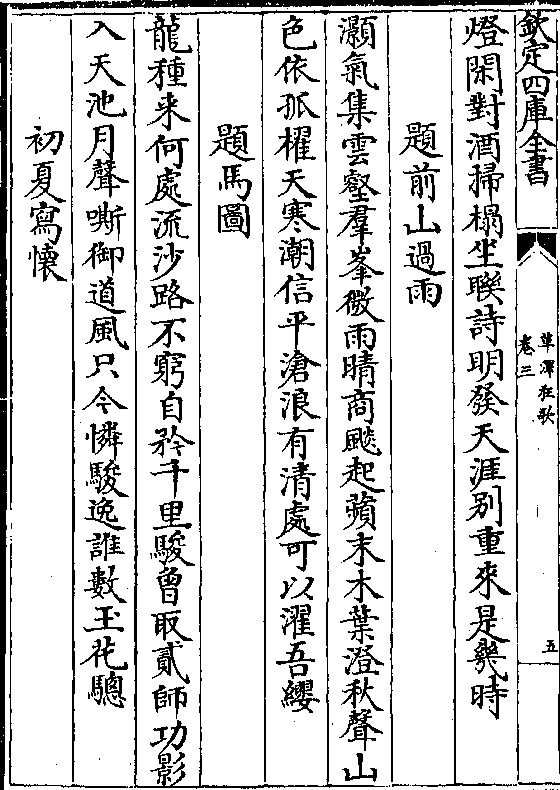 欽定四庫全書
草澤狂歌
卷三
五
燈閑對酒掃榻坐聯詩明發天涯别重來是幾時
題前山過雨
灝氣集雲壑羣峯微雨晴商飈起蘋末木葉澄秋聲山
色依孤櫂天寒潮信平滄浪有清處可以濯吾纓
題馬圖
龍種来何處流沙路不窮自矜千里駿曾取貳師功影
入天池月聲嘶御道風只今憐駿逸誰數玉花驄
初夏寫懷